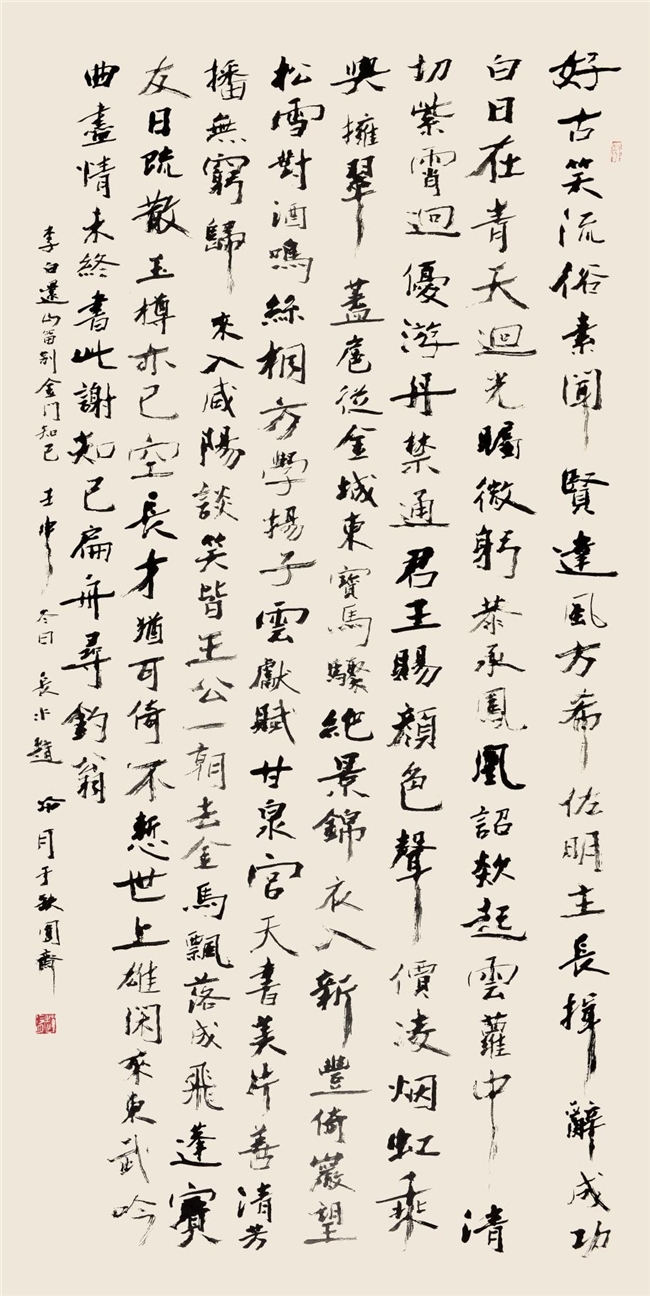 好古笑流俗素聞賢達風方希佐明主長揖辭成功
白日在青天迴光矚微躬恭承鳳凰詔欻起雲蘿中清
切紫霄迥優游丹禁通君王賜顏色聲價凌烟虹乘
輿擁翠蓋扈從金城東寶馬驟絕景錦衣入新豐倚巖望
松雪對酒鳴絲桐方學揚子雲獻賦甘泉宮天書美片善清芳
播無窮歸來入咸陽談笑皆王公一朝去金馬飄落成飛蓬賓
友日疏散玉樽亦已空長才猶可倚不慙世上雄閑來東武吟
曲盡情未終書此謝知己扁舟尋釣翁
李白還山留别金门知己 壬申冬日 長 趙 月于 齋